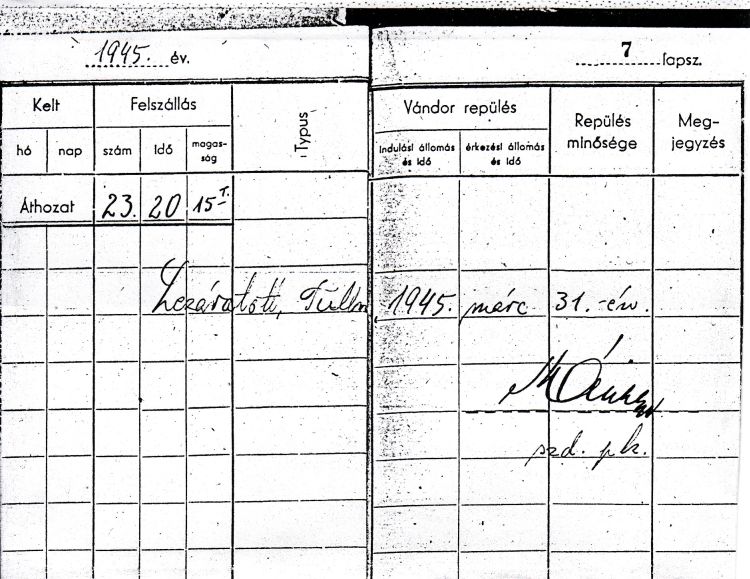 1945. év.
7 lapsz.
Kelt
Felszállás
Typus
Vándor repülés
Repülés minősége
Meg-
jegyzés
hó nap szám Idő magas-
ság
Indulási állomás
és Idő
érkezési állomás
és Idő
Áthozat 23. 20 15 T.
Lezáratott, Tulln 1945. márc 31.-én.
szd. pk.